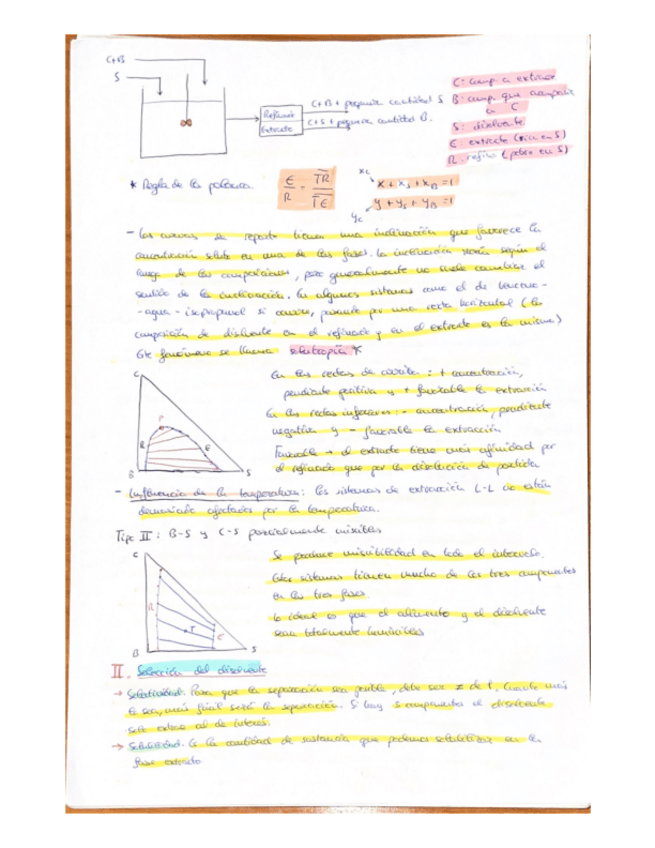 C+B
S
Refinado
Extracto
C+B + pequeña cantidad S
C+S + pequeña cantidad B.
C: comp. a extraer
B: comp. que acompaña
a C
S: disolvente
E: extracto (rico en S)
R: refino (pobre en S)
* Regla de la palanca
E/R = TR/TE
xc
x + xs + xB = 1
y + ys + yB = 1
yc
- Las rectas de reparto tienen una inclinación que favorece la
concentración soluto en una de las fases. La inclinación varía según el
rango de las composiciones, pero generalmente no suele cambiar el
sentido de la inclinación. En algunos sistemas como el de
-agua - isopropanol si ocurre, pasando por una recta horizontal (la
composición de disolvente en el refinado y en el extracto es la misma)
Este fenómeno se llama solutropía *
En las rectas de arriba: + concentración,
pendiente positiva y + favorable la extracción
En las rectas inferiores: - concentración, pendiente
negativa y - favorable la extracción
Favorable → el extracto tiene más afinidad por
el refinado que por la disolución de partida
C
P
R
E
B
S
- Influencia de la temperatura: los sistemas de extracción L-L no están
demasiado afectados por la temperatura.
Tipo II: B-S y C-S parcialmente miscibles
C
R
T
E
B
S
Se produce miscibilidad en todo el intervalo.
Estos sistemas tienen mucho de los tres componentes
en las tres fases.
Lo ideal es que el alimento y el disolvente
sean totalmente inmiscibles
II. Selección del disolvente
→ Selectividad. Para que la separación sea posible, debe ser ≠ de 1. Cuanto más
lo sea, más fácil será la separación. Si hay 3 componentes el disolvente
solo extrae al de interés.
→ Solubilidad. Es la cantidad de sustancia que podemos solubilizar en la
fase extracto